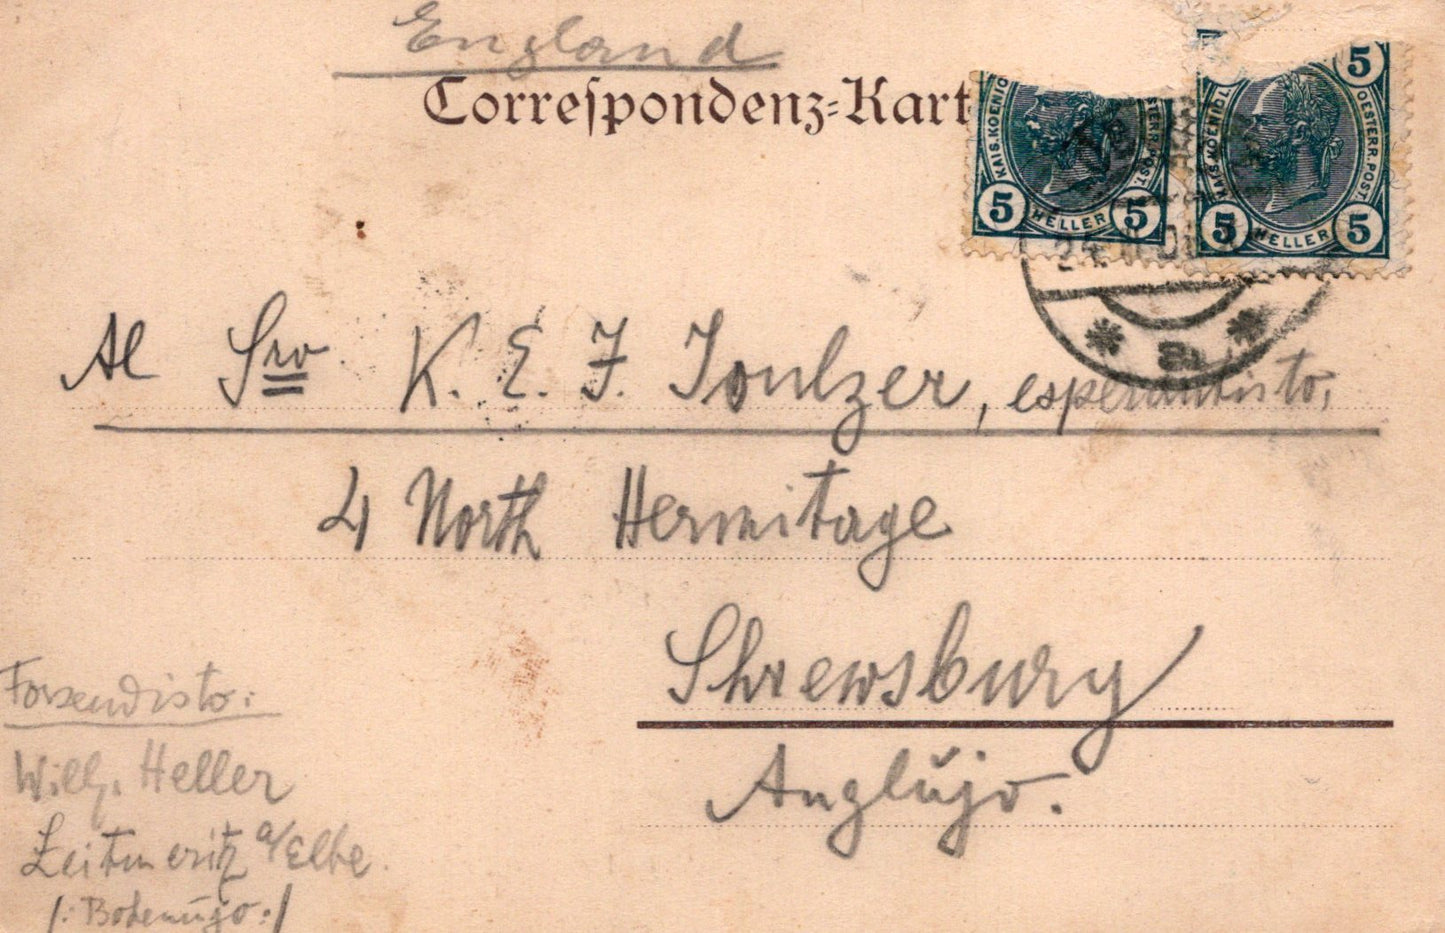 England
Correspondenz-Kart
KAIS. KOENIG
ÖSTERR. POST.
5 HELLER 5
5
KAIS. KOENIGL.
OESTERR. POST.
5 HELLER 5
Al Sro K. E. F. Toulzer, esperantisto,
4 North Hermitage
Shrewsbury
Anglŭjo.
Forsendisto:
Wilh. Heller
Leitmeritz a/Elbe.
/: Bohemŭjo :/